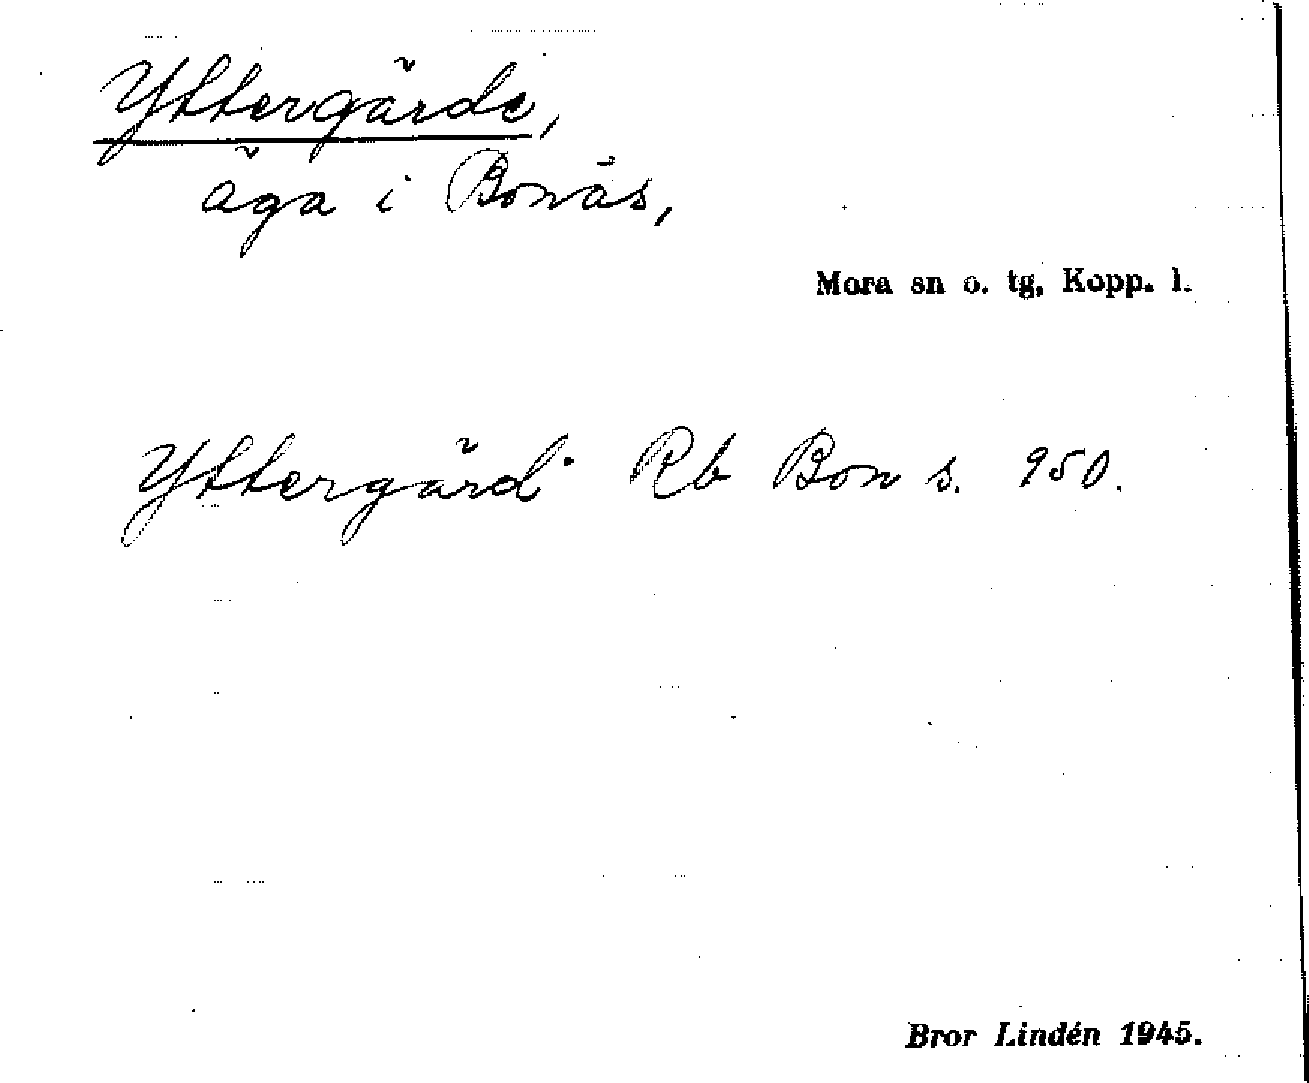 Yttergärde,
äga i Bonäs,
Mora sn o. tg, Kopp. l.
Yttergärd· Rb Bon s. 950.
Bror Lindén 1945.